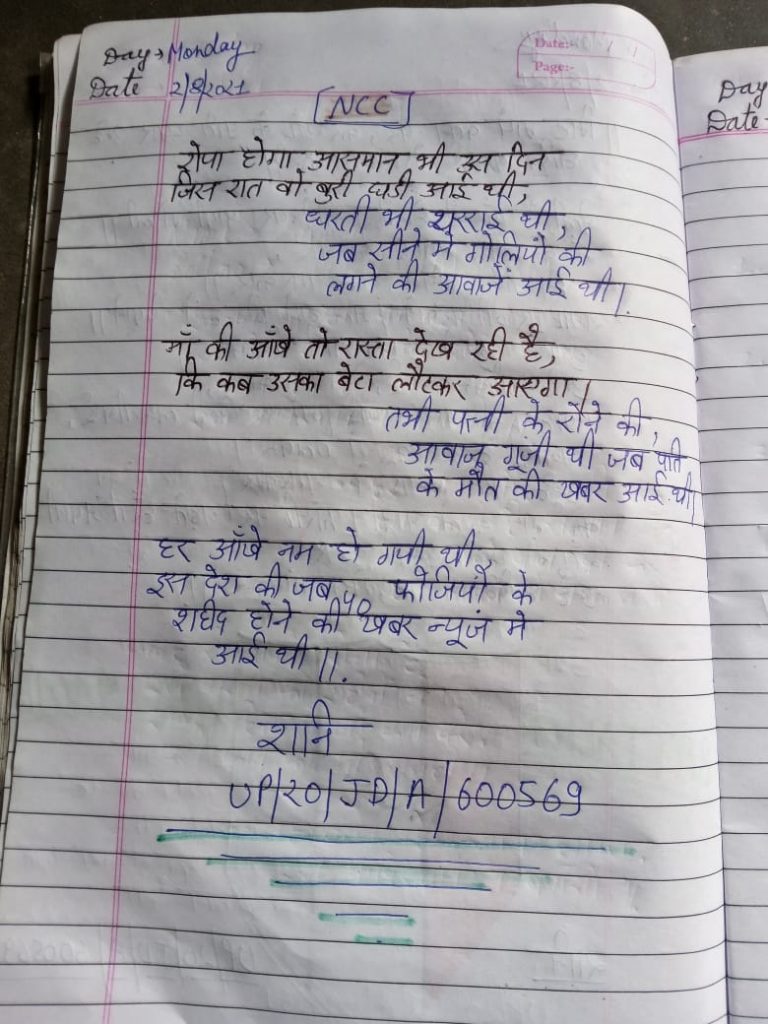 Day → Monday
Date 2/8/2021
Date:-
Page:-
NCC
रोया होगा आसमान भी उस दिन
जिस रात वो बुरी घडी आई थी,
धरती भी थरराई थी,
जब सीने मे गोलियों की
लगने की आवाजें आई थी।
माँ की आँखे तो रास्ता देख रही है,
कि कब उसका बेटा लौटकर आएगा।
तभी पत्नी के रोने की,
आवाज़ गूंजी थी जब पति
के मौत की खबर आई थी।
हर आँखे नम हो गयी थी,
इस देश की जब 40 फोजियों के
शहीद होने की खबर न्यूज मे
आई थी।।.
शानि
UP/20/JD/A/600569
Day
Date-